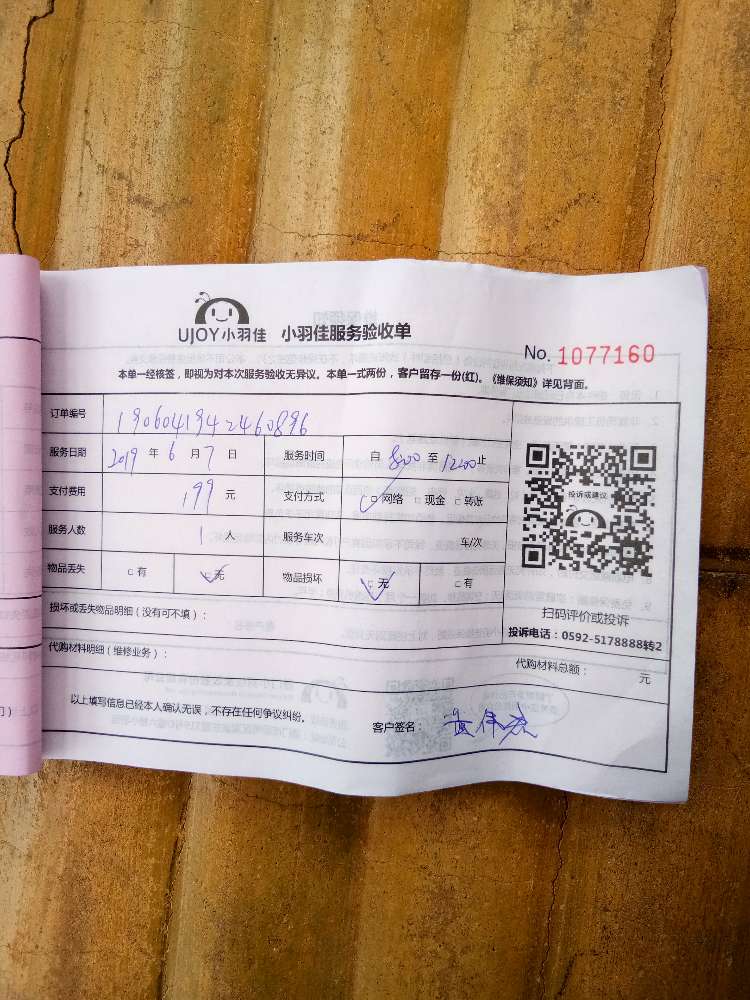 UJOY小羽佳 小羽佳服务验收单
No. 1077160
本单一经核签，即视为对本次服务验收无异议。本单一式两份，客户留存一份(红)。《维保须知》详见背面。
订单编号 1906041942460896
服务日期 2019 年 6 月 7 日 服务时间 自 8:00 至 12:00 止
支付费用 199 元 支付方式 □ 网络 □ 现金 □ 转账
服务人数 1 人 服务车次 车/次
物品丢失 □ 有 □ 无 物品损坏 □ 无 □ 有
投诉或建议
扫码评价或投诉
投诉电话：0592-5178888转2
损坏或丢失物品明细（没有可不填）：
代购材料明细（维修业务）： 代购材料总额： 元
以上填写信息已经本人确认无误，不存在任何争议纠纷。 客户签名：